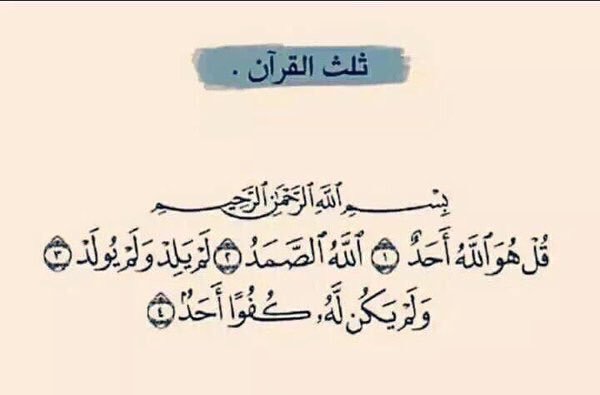 ثلث القرآن .
بِسْمِ اللَّهِ الرَّحْمَٰنِ الرَّحِيمِ
قُلْ هُوَ ٱللَّهُ أَحَدٌ ١ ٱللَّهُ ٱلصَّمَدُ ٢ لَمْ يَلِدْ وَلَمْ يُولَدْ ٣
وَلَمْ يَكُن لَّهُۥ كُفُوًا أَحَدٌۢ ٤